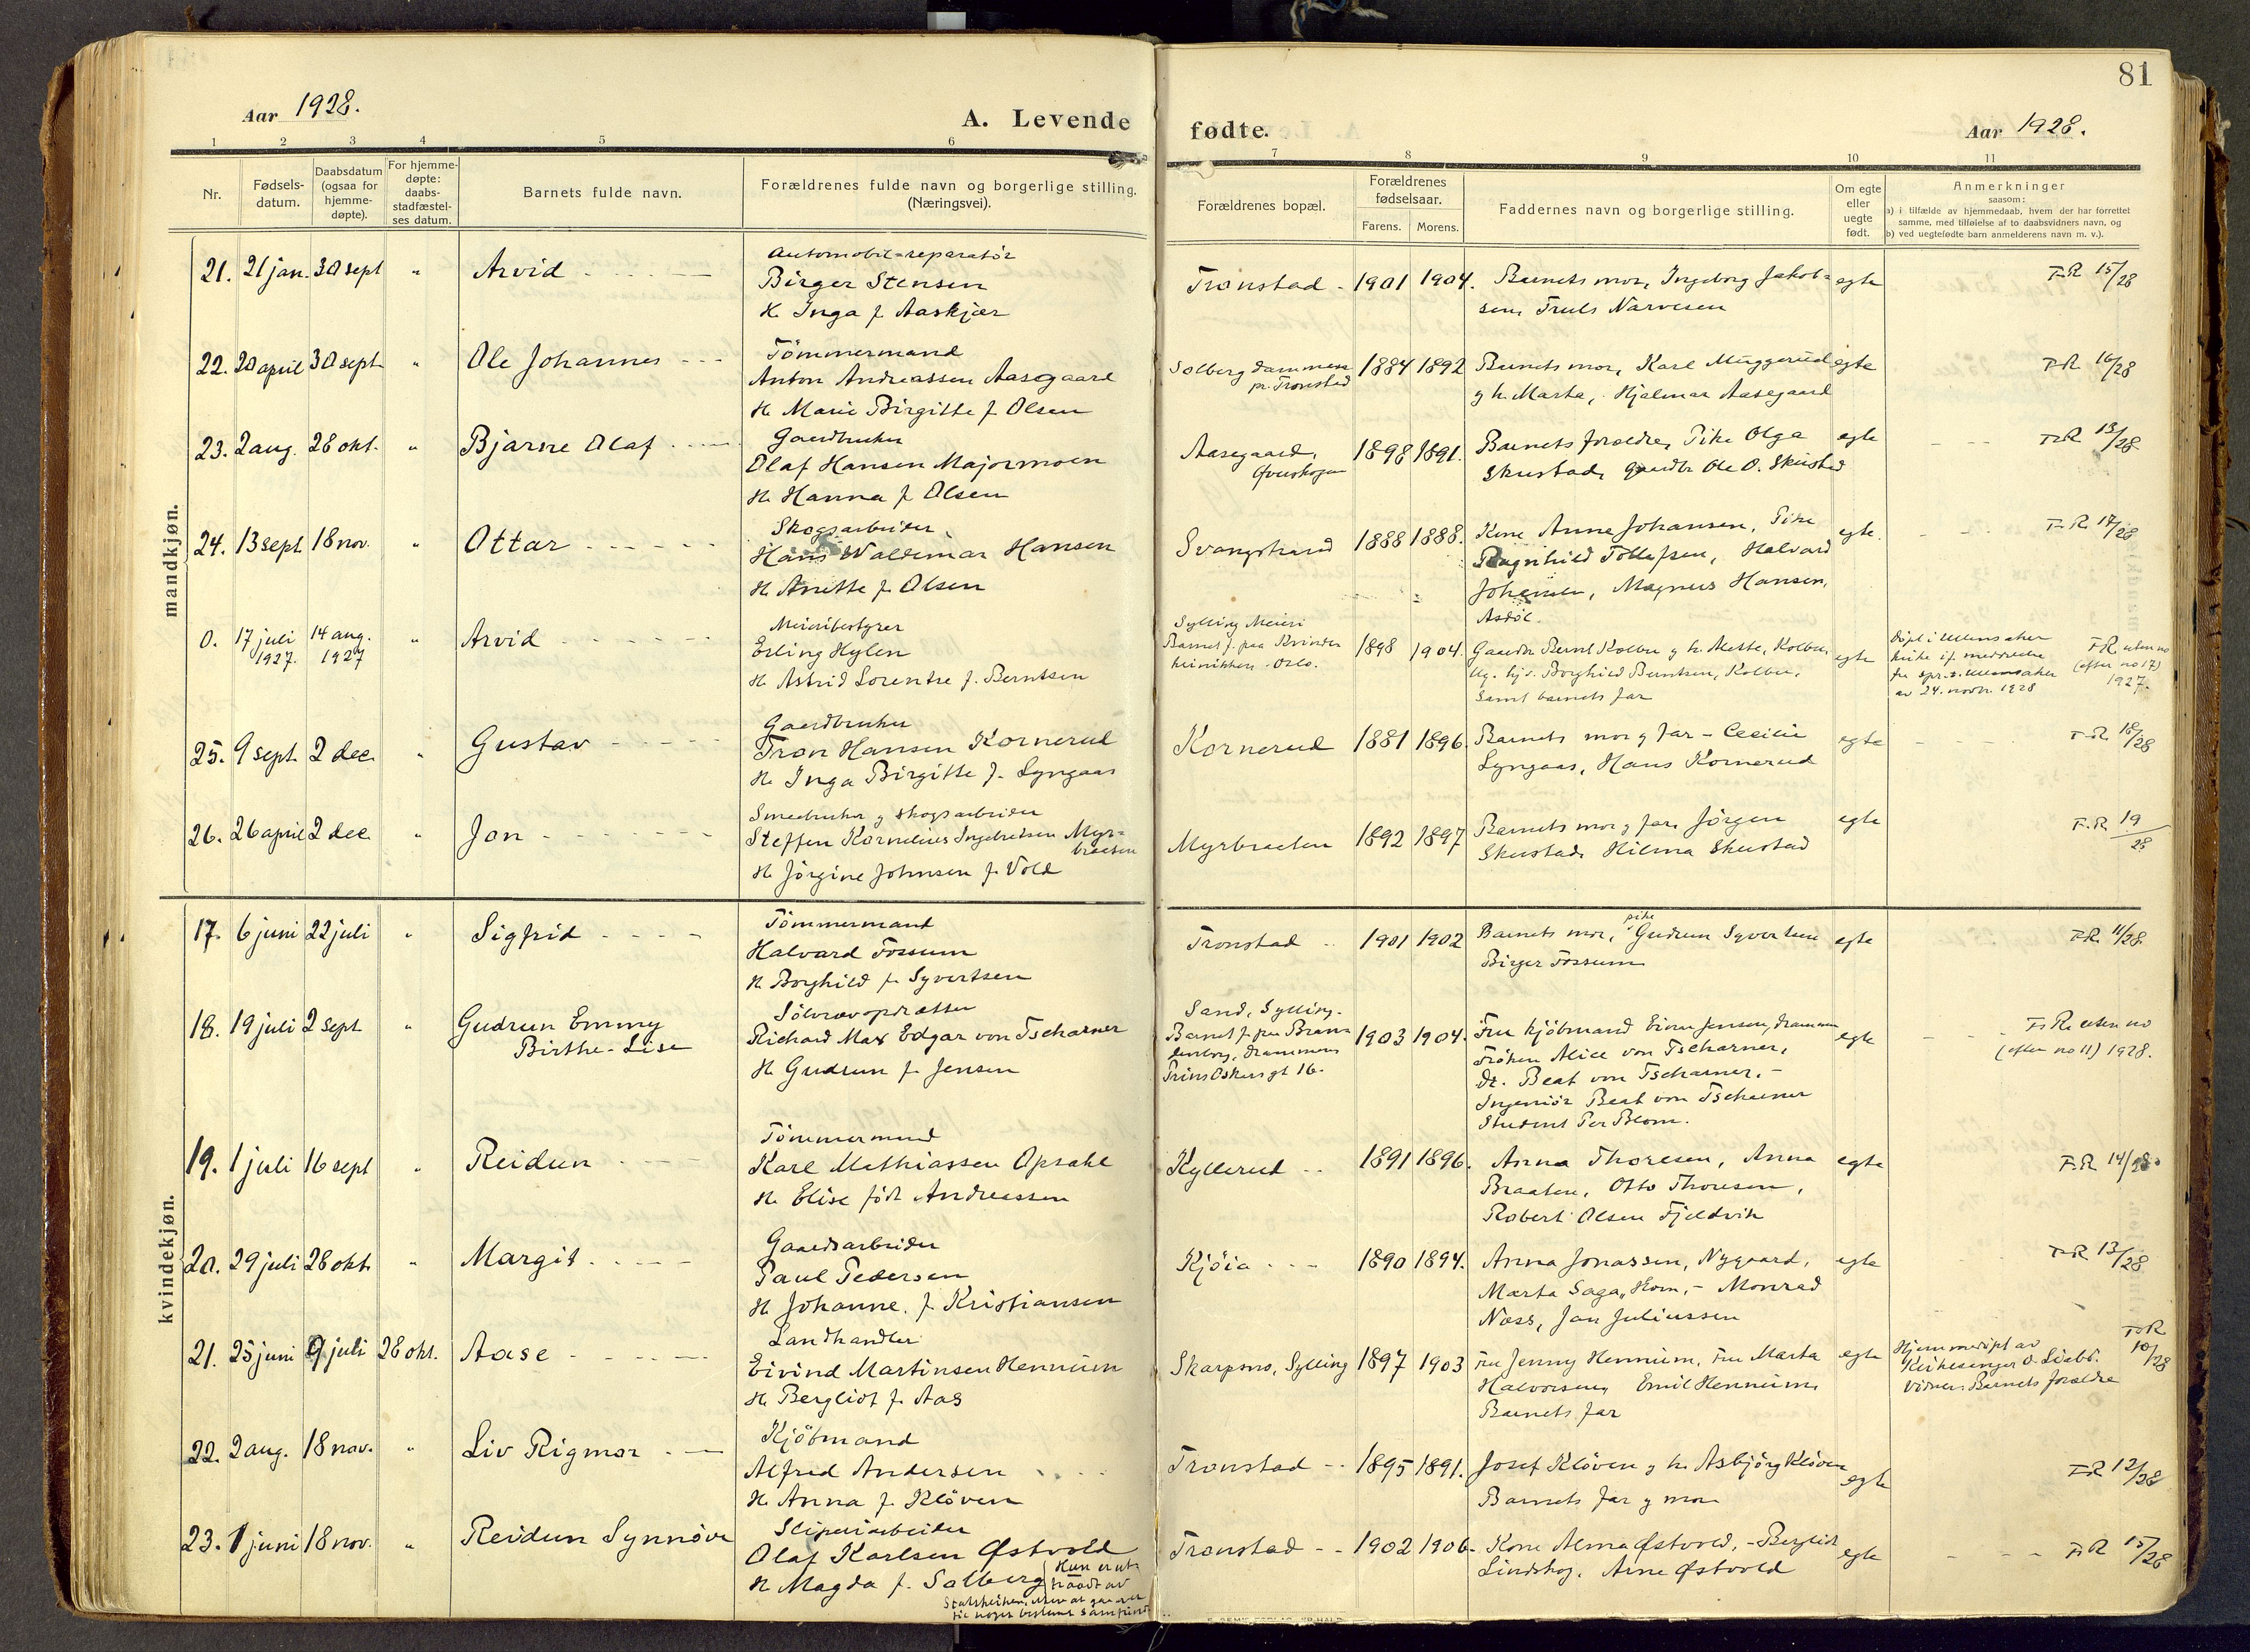 81
Aar 1928.
A. Levende fødte.
Aar 1928.
1 2 3 4 5 6 7 8 9 10 11
Nr.
Fødsels-
datum.
Daabsdatum
(ogsaa for
hjemme-
døpte).
For hjemme-
døpte:
daabs-
stadfæstel-
ses datum.
Barnets fulde navn.
Forældrenes fulde navn og borgerlige stilling.
(Næringsvei).
Forældrenes bopæl.
Forældrenes
fødselsaar.
Farens. Morens.
Faddernes navn og borgerlige stilling.
Om egte
eller
uegte
født.
Anmerkninger
saasom:
a) i tilfælde av hjemmedaab, hvem der har forrettet
samme, med tilføielse af to daabsvidners navn, og
b) ved uegtefødte barn anmelderens navn m. v.).
mandkjøn.
21. 21 jan. 30 sept „ Arvid
Automobil-reparatör
Birger Stensen
H. Inga f. Aaskjær
Tronstad - 1901 1904.
Barnets mor, Ingeborg Jakob-
sen, Truls Narvesen
egte
F.R. 15/28
22. 20 april 30 sept. „ Ole Johannes
Tömmermand
Anton Andreassen Aasegaard
H. Marie Birgitte f. Olsen
Solbergdammen
pr. Tronstad
1884 1892
Barnets mor, Karl Muggerud
g h. Marta, Hjalmar Aasegaard
egte
F.R. 16/28
23. 2 aug. 28 okt. „ Bjarne Olaf
Gaardbruker
Olaf Hansen Majormoen
H. Hanna f. Olsen
Aasegaard,
Øverskogen
1898 1891.
Barnets forældre, Pike Olga
Skustad, gaardbr Ole O. Skustad
egte
F.R. 13/28
24. 13 sept. 18 nov. „ Ottar
Skogsarbeider
Hans Waldemar Hansen
H. Anette f. Olsen
Svangstrand 1888 1888.
Kone Anne Johansen, Pike
Ragnhild Tollefsen, Halvard
Johansen, Magnus Hansen,
Asdöl.
egte.
F.R. 17/28
0. 17 juli 14 aug. „ Arvid
1927. 1927
Meieribestyrer
Erling Hylen
H. Astrid Lorentse f. Berntsen
Sylling Meieri
Barnet f. paa Kvinde
klinikken - Oslo.
1898 1904.
Gaardbr Bernt Kolbu g h. Alette, Kolbu,
Ug. hjv. Borghild Berntsen, Kolbu,
Samt barnets far
egte
Döpt i Ullensaker
kirke if. meddelelse
fra spr. i Ullensaker
av 24. novbr. 1928
F.R. uten no
(efter no 17)
1927.
25. 9 sept. 2 dec. „ Gustav
Gaardbruker
Tron Hansen Kornerud
H. Inga Birgitte f. Lyngaas
Kornerud 1881 1896.
Barnets mor g far - Cecilie
Lyngaas, Hans Kornerud
egte
F.R. 18/28
26. 26 april 2 dec „ Jon
Smaabruker g skogsarbeider
Steffen Kornelius Ingebretsen Myr-
braaten
H. Jörgine Johnsen f. Vold
Myrbraaten 1892 1897
Barnets mor g far, Jörgen
Skustad, Hilma Skustad
egte
F.R. 19/28
kvindekjøn.
17. 6 juni 22 juli „ Sigfrid
Tömmermand
Halvard Fossum
H. Borghild f. Syvertsen
Tronstad 1901 1902
Barnets mor, pike Gudrun Syvertsen
Birger Fossum
egte
F.R. 11/28
18. 19 juli 2 sept „ Gudrun Emmy
Birthe-Lise
Sölvrævopdrætter
Richard Max Edgar von Tscharner
H. Gudrun f. Jensen
Sand, Sylling.
Barnet f. paa
Drammen
Prins Oskars gt 16.
1903 1904.
Fru kjöbmand Jensen, Drammen
Fröken Alice von Tscharner,
Dr. Beat von Tscharner. -
Ingeniör Beat von Tscharner
Student Per Blom.
egte
F.R. uten no
(efter no 11) 1928.
19. 1 juli 16 sept „ Reidun
Tömmermand
Karl Mathiassen Opsahl
H. Elise född Andreassen
Kyllerud 1891 1896.
Anna Thoresen, Anna
Braaten, Otto Thoresen,
Robert Olsen Fjeldvik
egte
F.R. 14/28
20. 29 juli 28 okt. „ Margit
Gaardsarbeider
Paul Pedersen
H. Johanne f. Kristiansen
Kjöia 1890 1894.
Anna Jonassen, Nygaard,
Marta Saga, Horn, - Monrad
Næss, Jan Juliussen
egte
F.R. 13/28
21. 25 juni 9 juli 28 okt. Aase
Landhandler
Eivind Martinsen Hennum
H. Bergliot f. Aas
Skarpsno, Sylling 1897 1903
Fru Jenny Hennum, Fru Marta
Halvorsen, Emil Hennum,
Barnets far
egte
Hjemmedöpt av
Kirkesanger O.
Vidner: Barnets forældre
F.R. 10/28
22. 2 aug. 18 nov. „ Liv Rigmor
Kjöbmand
Alfred Andersen
H. Anna f. Klöven
Tronstad 1895 1891.
Josef Klöven g h. Asbjörg Klöven
Barnets far g mor
egte
F.R. 12/28
23. 1 juni 18 nov. „ Reidun Synnöve
Sliperiarbeider
Olaf Karlsen Østvold
H. Magda f. Solberg
Hun er ut-
traadt av
Statskirken, uten at gaa over
til noget bestemt samfund
Tronstad 1902 1906.
Kone Alma Østvold, - Bergliot
Lindskog, Arne Østvold
egte
F.R. 15/28